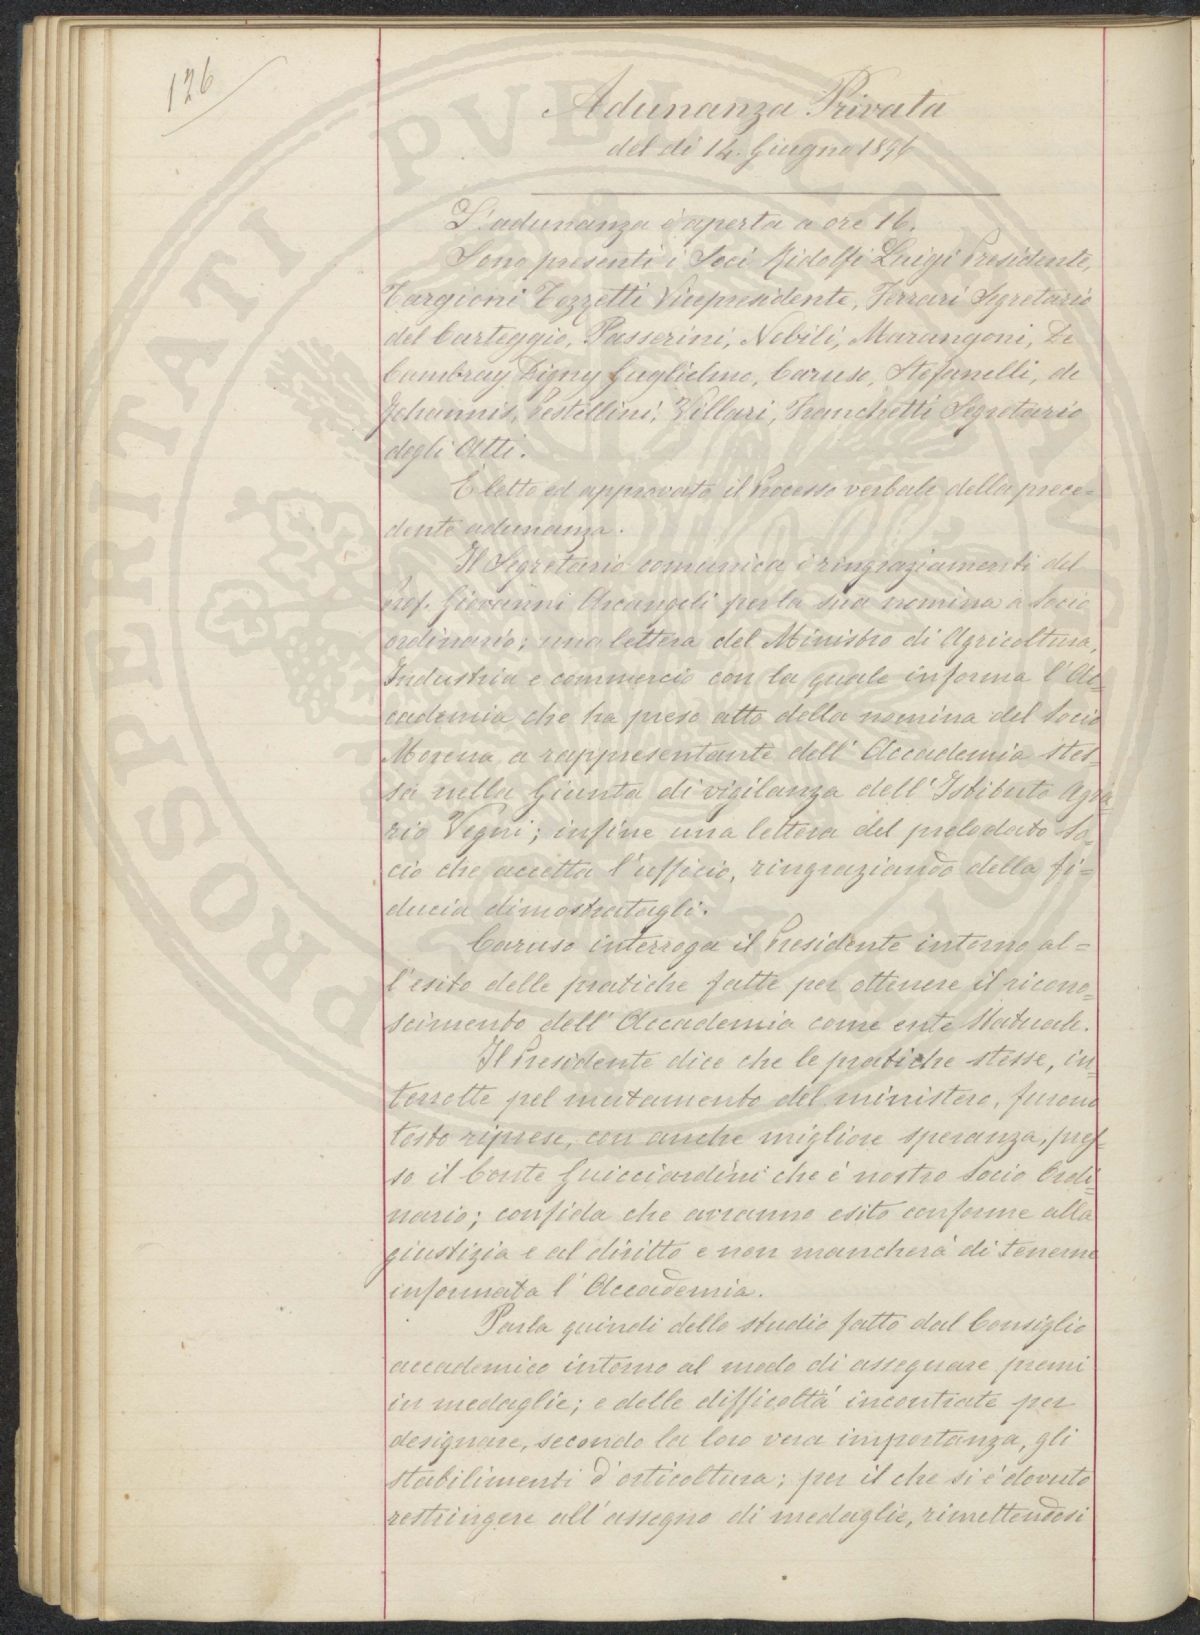 126
Adunanza Privata
del dì 14. Giugno 1896
L'adunanza è aperta a ore 16.
Sono presenti i Soci Ridolfi Luigi Presidente,
Targioni Tozzetti Vicepresidente, Ferrari Segretario
del Carteggio, Passerini, Nobili, Marangoni, De
Cambray Digny Guglielmo, Caruso, Stefanelli, de
Johannis, Pestellini, Villari, Franchetti Segretario
degli Atti.
È letto ed approvato il Processo verbale della prece=
dente adunanza.
Il Segretario comunica i ringraziamenti del
Prof. Giovanni Arcangeli per la sua nomina a Socio
ordinario; una lettera del Ministro di Agricoltura,
Industria e commercio con la quale informa l'Ac=
cademia che ha preso atto della nomina del Socio
Morena a rappresentante dell'Accademia stes=
sa nella Giunta di vigilanza dell'Istituto Agra=
rio Vegni; infine una lettera del prelodato So=
cio che accetta l'ufficio, ringraziando della fi=
ducia dimostratagli.
Caruso interroga il Presidente intorno al=
l'esito delle pratiche fatte per ottenere il ricono=
scimento dell'Accademia come ente Statuale.
Il Presidente dice che le pratiche stesse, in=
terrotte pel mutamento del ministero, furono
tosto riprese, con anche migliore speranza, pres=
so il Conte Guicciardini che è nostro Socio Ordi=
nario; confida che avranno esito conforme alla
giustizia e al diritto e non mancherà di tenerne
informata l'Accademia.
Parla quindi dello studio fatto dal Consiglio
accademico intorno al modo di assegnare premi
in medaglie; e delle difficoltà incontrate per
designare, secondo la loro vera importanza, gli
stabilimenti d'orticoltura; per il che si è dovuto
restringere all'assegno di medaglie, rimettendosi
PROSPERITATI PVBLICAE AVGENDAE